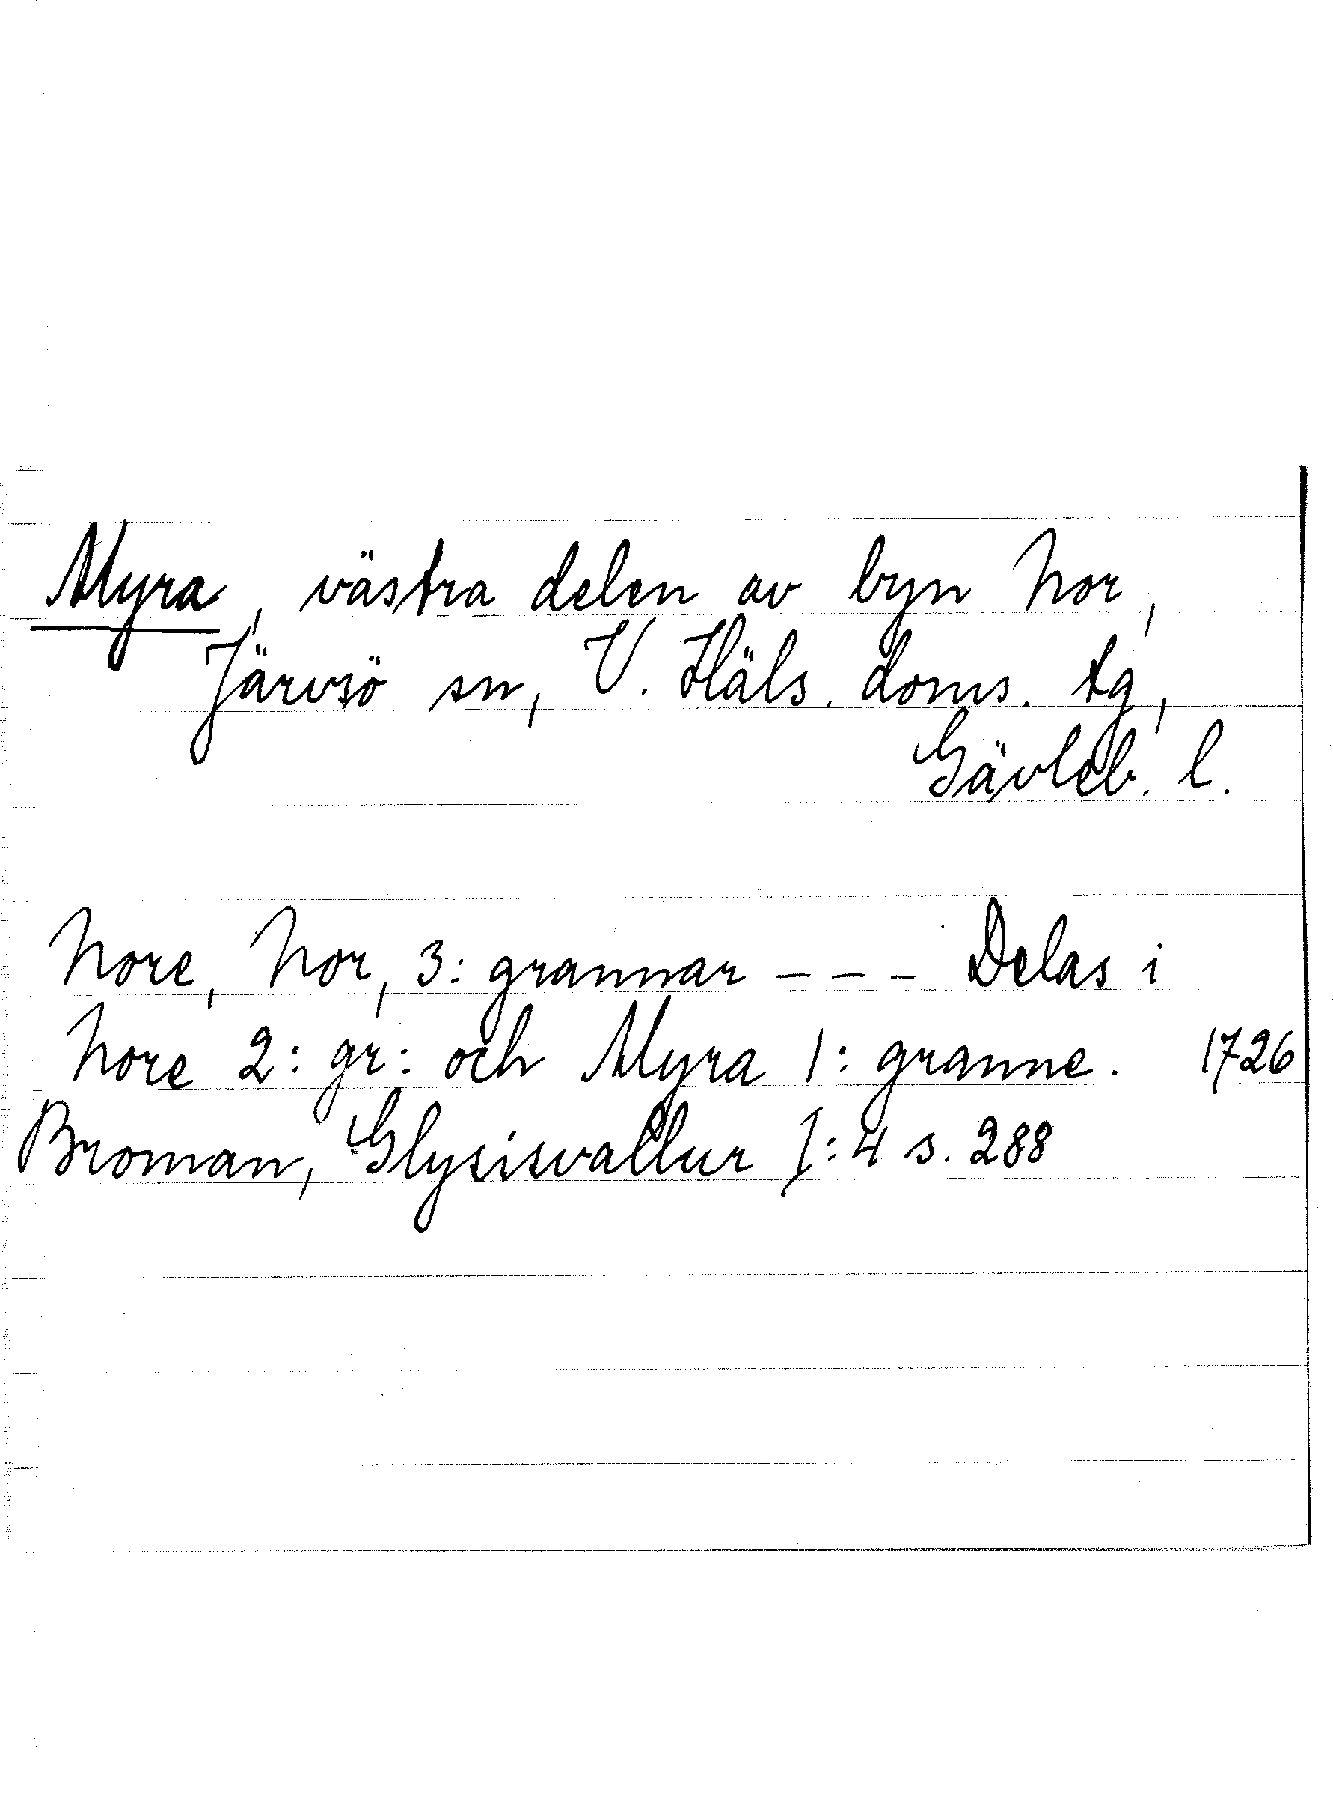 Myra, västra delen av byn Nor,
Järvsö sn, V. Häls. doms. tg,
Gävleb. l.
Nore, Nor, 3: grannar - - - Delas i
Nore 2: gr: och Myra 1: granne. 1726
Broman, Glysisvallur I: 4 s. 288